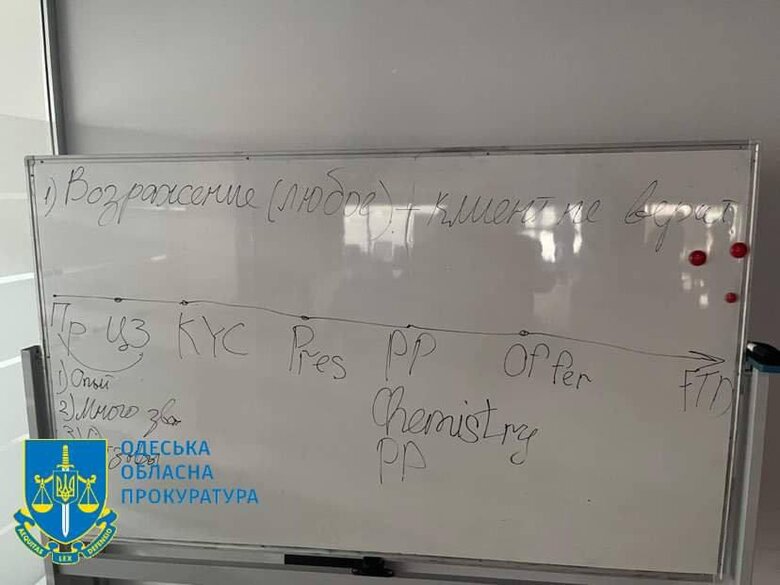 1) Возражение (любое) + клиент не верит
Пр ЦЗ KYC Pres PP Offer FTD
1) Опыт
2) Много зв
Chemistry
PP
ОДЕСЬКА
ОБЛАСНА
ПРОКУРАТУРА
AEQUITAS LEX DEFENSIO